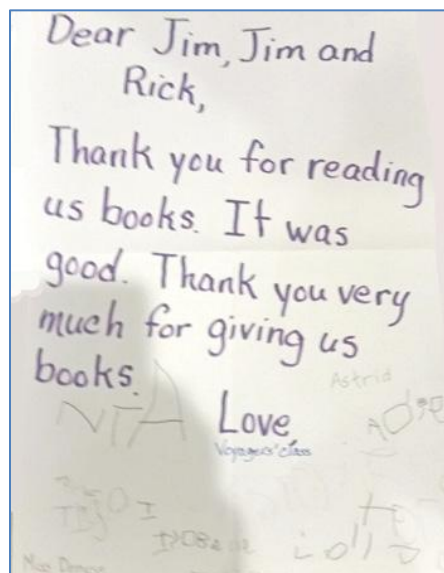 Dear Jim, Jim and
Rick,
Thank you for reading
us books. It was
good. Thank you very
much for giving us
books.
Astrid
NIA
Love,
Voyagers' class